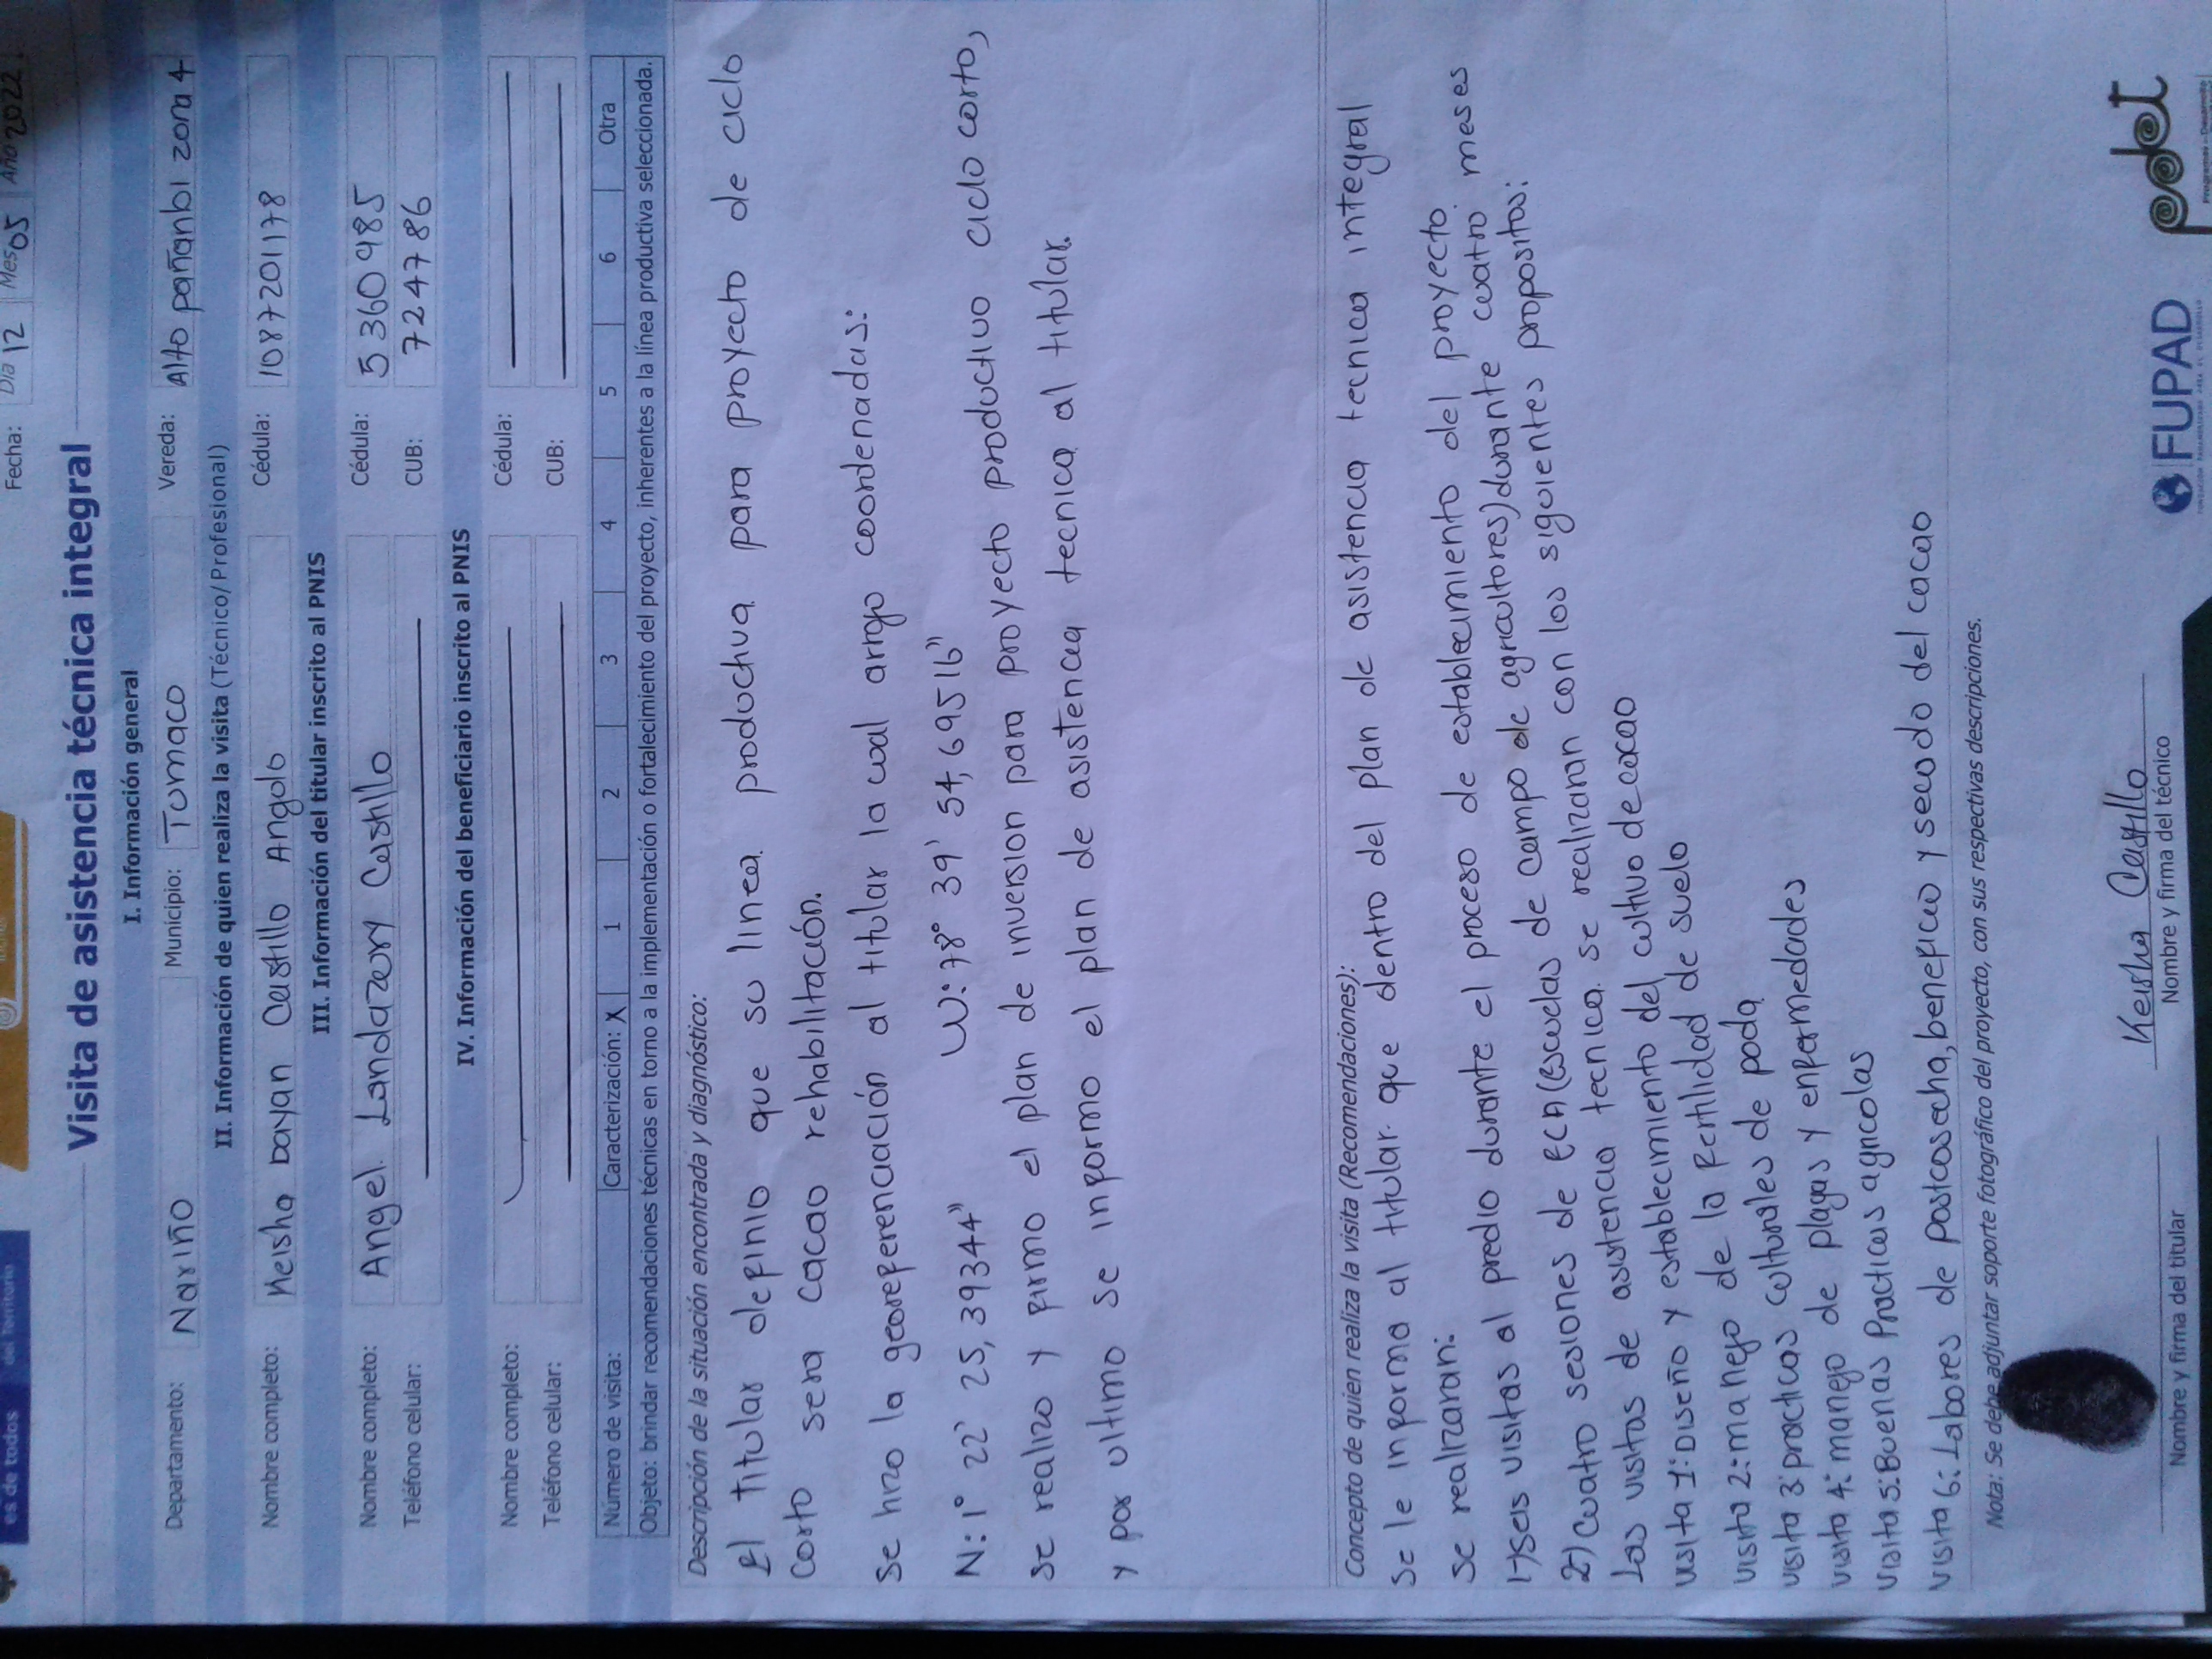 es de todos del Territorio
Fecha: Día 12 Mes 05 Año 2022
Visita de asistencia técnica integral
I. Información general
Departamento: Nariño Municipio: Tumaco Vereda: Alto pañanbi zona 4
II. Información de quien realiza la visita (Técnico/Profesional)
Nombre completo: Keisha Dayan Castillo Angulo Cédula: 1087201178
III. Información del titular inscrito al PNIS
Nombre completo: Angel Landazury Castillo Cédula: 5360985
Teléfono celular: CUB: 724786
IV. Información del beneficiario inscrito al PNIS
Nombre completo: Cédula:
Teléfono celular: CUB:
Número de visita: Caracterización: X 1 2 3 4 5 6 Otra
Objeto: brindar recomendaciones técnicas en torno a la implementación o fortalecimiento del proyecto, inherentes a la línea productiva seleccionada.
Descripción de la situación encontrada y diagnóstico:
El titular definio que su linea productiva para proyecto de ciclo
corto sera cacao rehabilitación.
Se hizo la georeferenciación al titular la cual arrojo coordenadas:
N: 1° 22' 25,39344" W: 78° 39' 54,69516"
Se realizo y firmo el plan de inversion para proyecto productivo ciclo corto,
y por ultimo se informo el plan de asistencia tecnica al titular.
Concepto de quien realiza la visita (Recomendaciones):
Se le informa al titular que dentro del plan de asistencia tecnica integral
se realizaran:
1) Seis visitas al predio durante el proceso de establecimiento del proyecto
2) Cuatro sesiones de ECA (escuelas de campo de agricultores) durante cuatro meses
Las visitas de asistencia tecnica se realizaran con los siguientes propositos:
visita 1: Diseño y establecimiento del cultivo de cacao
visita 2: manejo de la fertilidad de suelo
visita 3: practicas culturales de poda
visita 4: manejo de plagas y enfermedades
visita 5: Buenas Practicas agricolas
visita 6: Labores de postcosecha, beneficio y secado del cacao
Nota: Se debe adjuntar soporte fotográfico del proyecto, con sus respectivas descripciones.
Keisha Castillo
Nombre y firma del titular Nombre y firma del técnico
FUPAD pdet